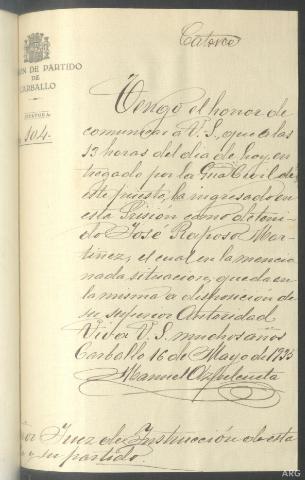 Catorce
ON DE PARTIDO
DE
CARBALLO
404
Tengo el honor de
comunicar á V.S., que á las
13 horas del dia de hoy, en
tregado por la Gua. Civil de
este puesto, ha ingresado en
esta Prision como deteni-
do José Raposo Mar-
tinez, el cual en la mencio
nada situacion, queda en
la misma a disposición de
su superior Autoridad
Viva V.S. muchos años
Carballo 16 de Mayo de 1935
Manuel
Juez de Instrucción de esta
y su partido.
ARG